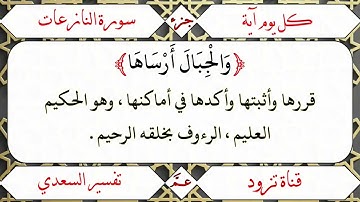 كل يوم آية
جزء
سورة النازعات
﴿وَالْجِبَالَ أَرْسَاهَا﴾
قررها وأثبتها وأكدها في أماكنها ، وهو الحكيم
العليم ، الرءوف بخلقه الرحيم .
قناة تزود
عمّ
تفسير السعدي